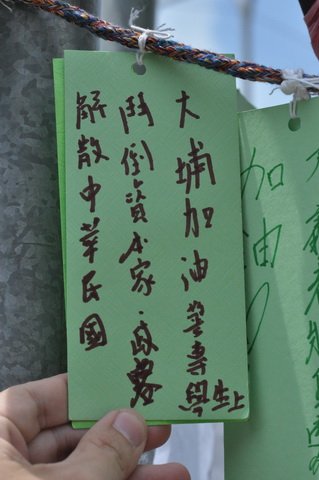 大埔加油 警專學生上
鬥倒資本家.政
解散中華民國
加油